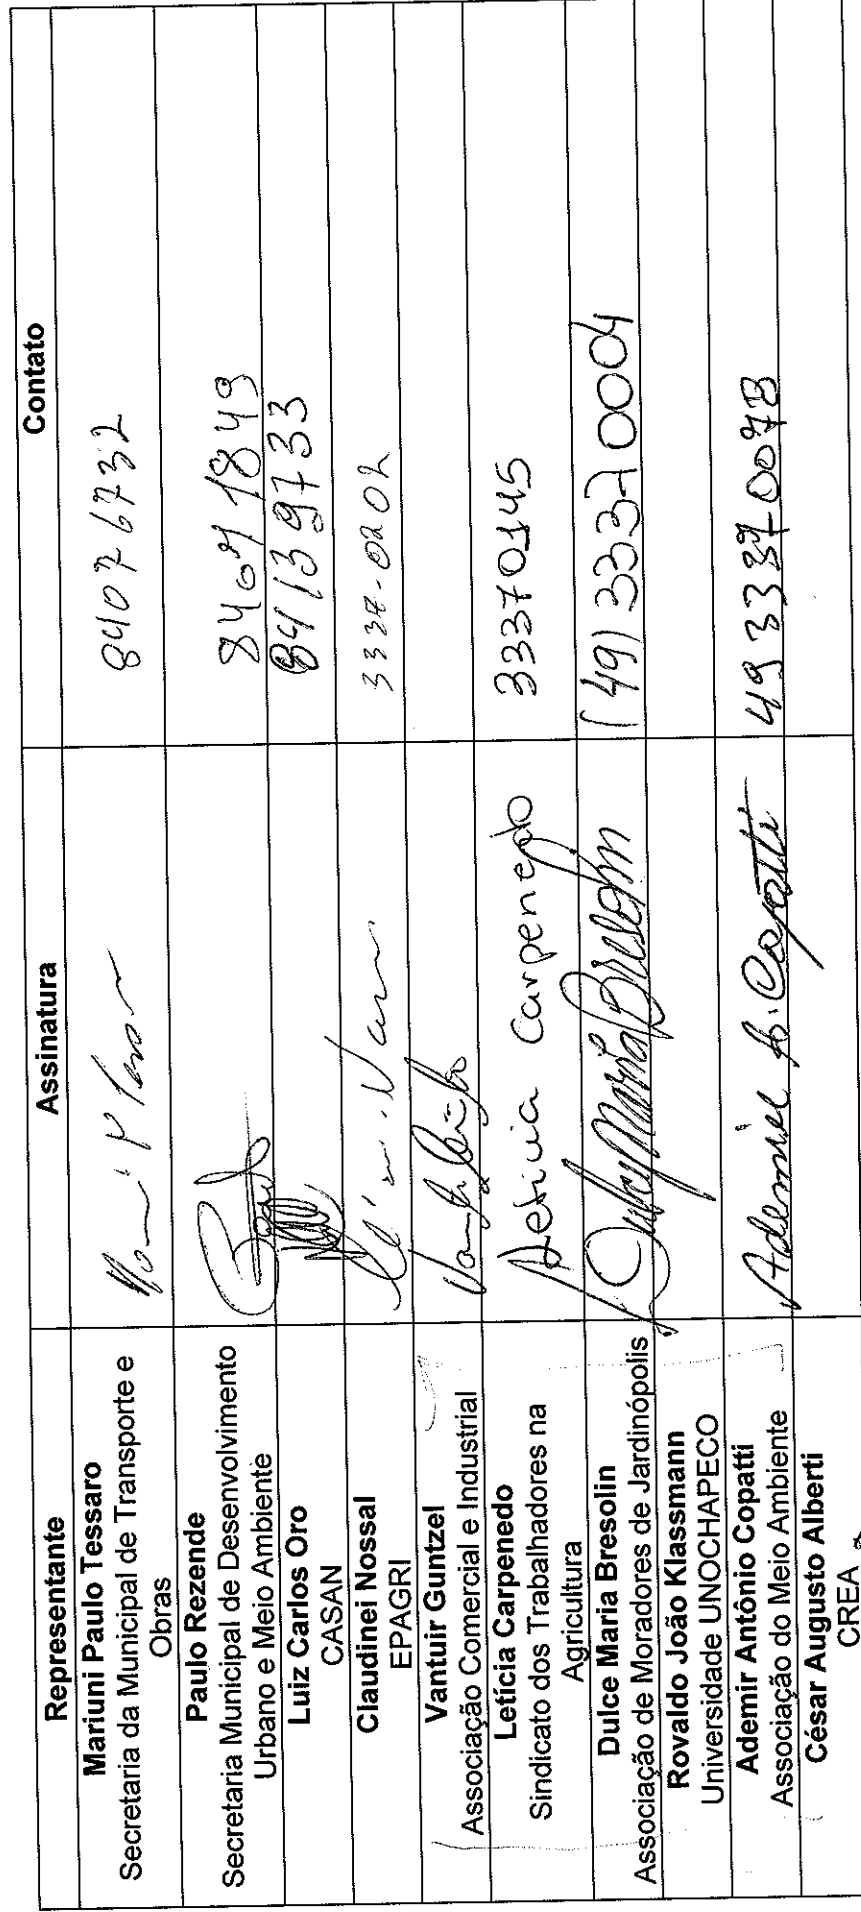 Representante Assinatura Contato
Mariuni Paulo Tessaro
Secretaria da Municipal de Transporte e
Obras
84076732
Paulo Rezende
Secretaria Municipal de Desenvolvimento
Urbano e Meio Ambiente
84071849
Luiz Carlos Oro
CASAN
84139733
Claudinei Nossal
EPAGRI
3337-0202
Vantuir Guntzel
Associação Comercial e Industrial
Letícia Carpenedo
Sindicato dos Trabalhadores na
Agricultura
Leticia Carpenedo
33370145
Dulce Maria Bresolin
Associação de Moradores de Jardinópolis
Dulce Maria Bresolin
(49) 33370004
Rovaldo João Klassmann
Universidade UNOCHAPECO
Ademir Antônio Copatti
Associação do Meio Ambiente
Ademir A. Copatti
49 33370078
César Augusto Alberti
CREA